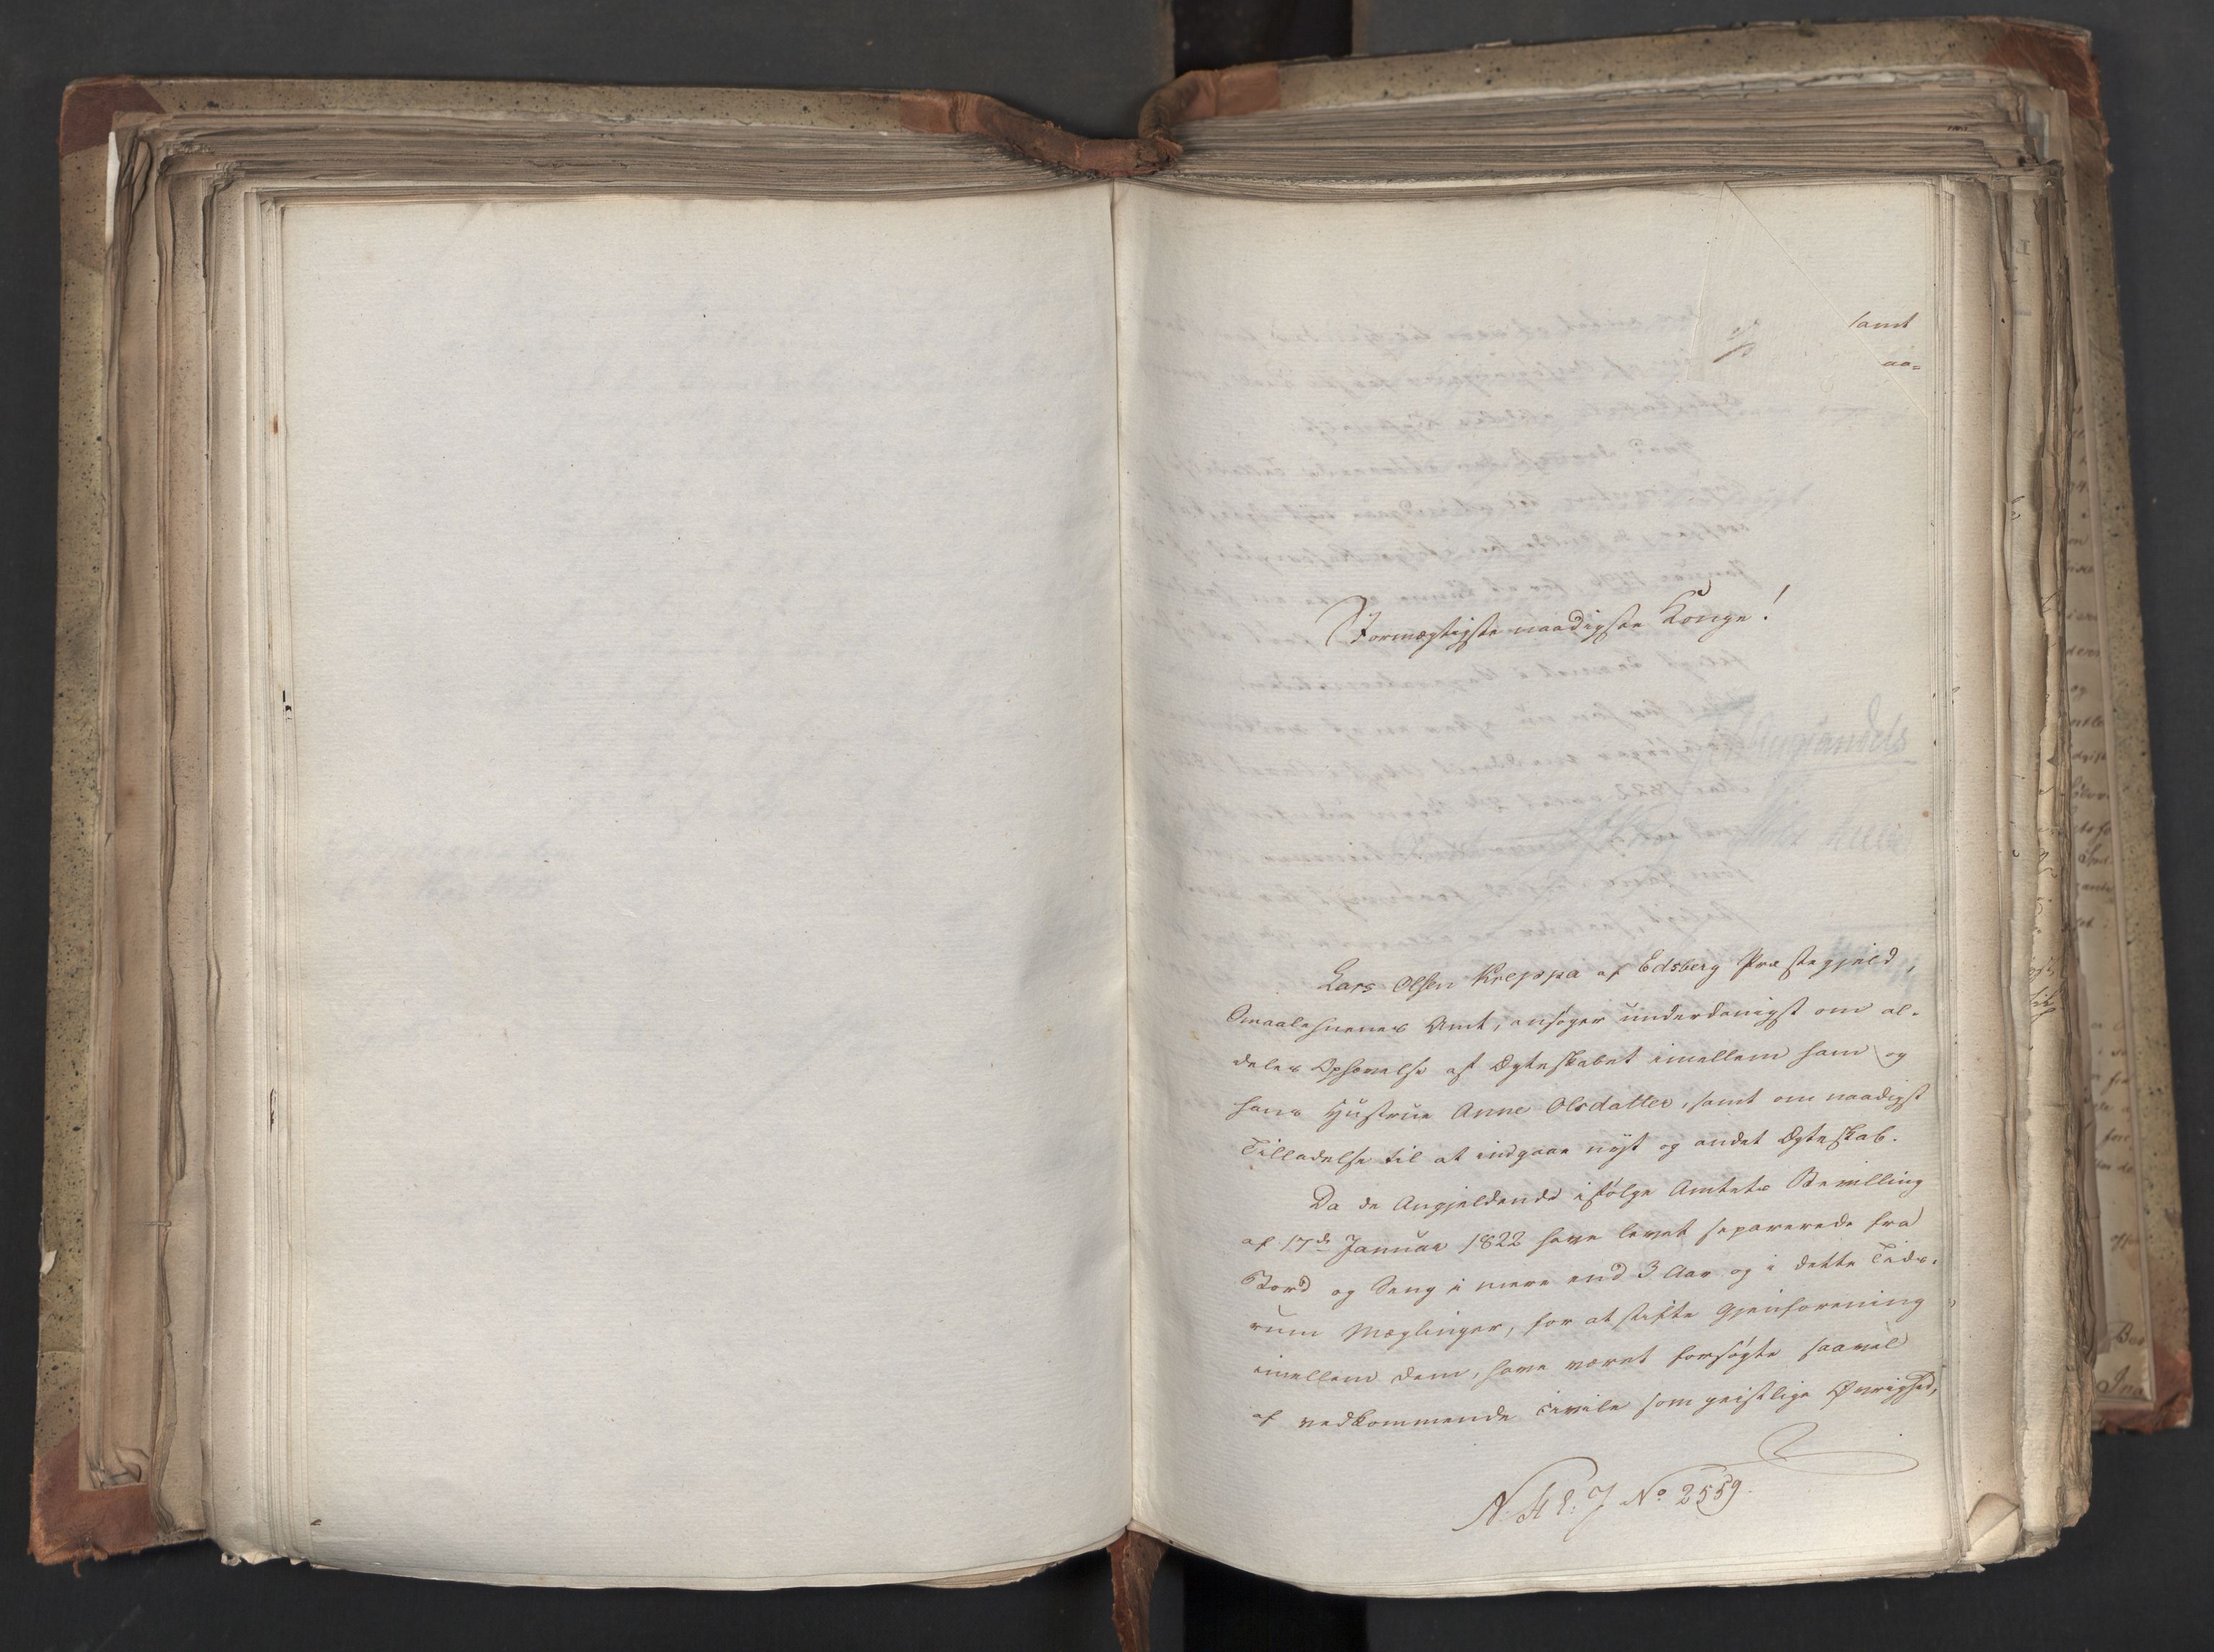 samt
aa=
Stormægtigste naadigste Konge!
Lars Olsen Kreppa af Edsberg Præstegjeld,
Smaalehnenes Amt, ansøger underdanigst om al-
deles Ophævelse af Ægteskabet imellem ham og
hans Hustrue Anne Olsdatter, samt om naadigst
Tilladelse til at indgaae nyt og andet Ægteskab.
Da de Angjeldende ifølge Amtets Bevilling
af 17de Januar 1822 have levet separerede fra
Bord og Seng i mere end 3 Aar og i dette Tids-
rum Mæglinger, for at stifte Gjenforening
imellem dem, have været forsøgte saavel
af vedkommende civile som geistlige Øvrighed,
No 2559.